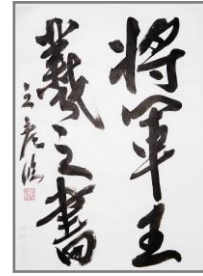 将軍王
羲之書